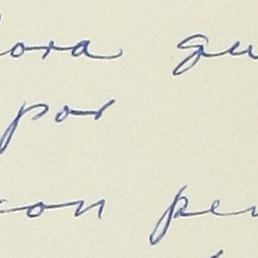 ora qu
por
con per